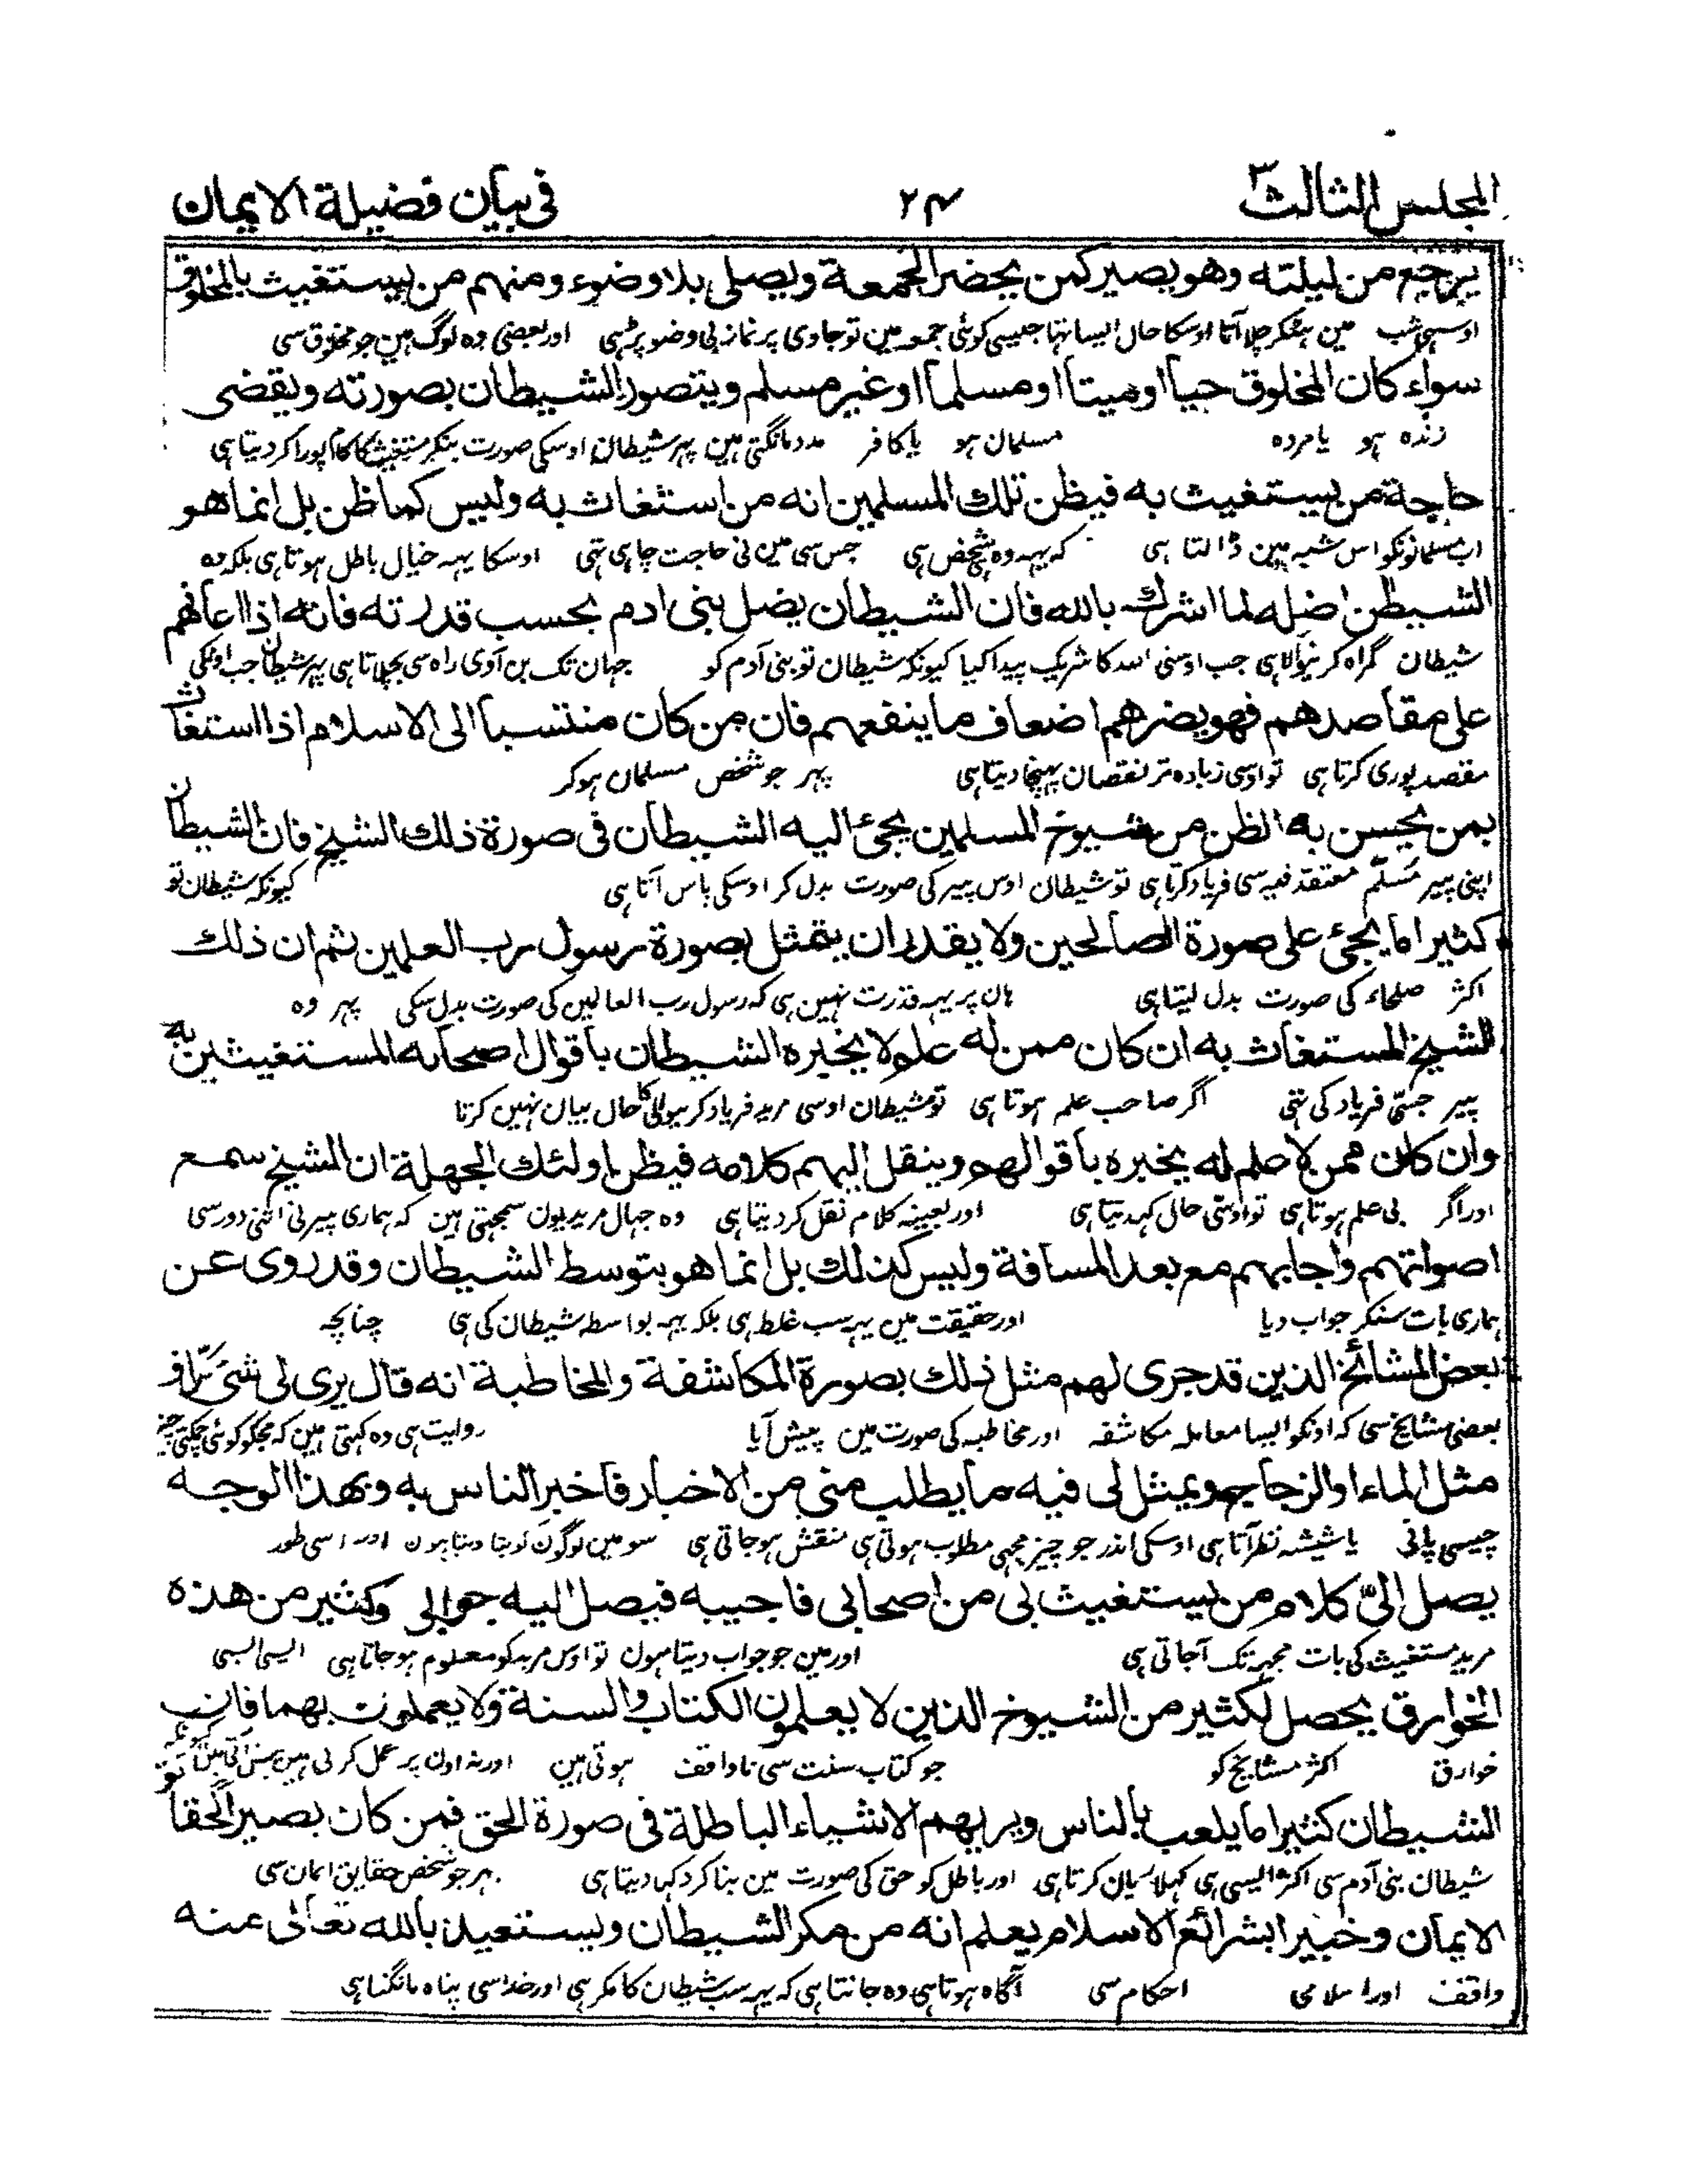 المجلس الثالث ٢٤ فى بيان فضيلة الايمان
يرجع من ليلته وهو يصير كمن يحضر الجمعة ويصلى بلا وضوء ومنهم من يستغيث بالمخلوق
اوسی شب مین ہٹکر چلا آتا اوسکا حال ایسا تہا جیسی کوئی جمعہ مین تو جاوی پر نماز بی وضو پڑہی اور بعضی وہ لوگ ہین جو مخلوق سی
سواء كان المخلوق حيا او ميتا او مسلما او غير مسلم ويتصور الشيطان بصورته ويقضى
زندہ ہو یا مردہ مسلمان ہو یا کافر مدد مانگتی ہین پہر شیطان اوسکی صورت بنکر مستغیث کا کام پورا کر دیتا ہی
حاجة من يستغيث به فيظن تلك المسلمين انه من استغاث به وليس كما ظن بل انما هو
اب مسلمانونکو اس شبہ مین ڈالتا ہی کہ یہہ وہ شخص ہی جس سی مین نی حاجت چاہی تہی اوسکا یہہ خیال باطل ہوتا ہی بلکہ وہ
الشيطن اضله لما اشرك بالله فان الشيطان يضل بنى ادم بحسب قدرته فانه اذا اعانهم
شیطان گمراہ کرنیوالا ہی جب اوسنی اللہ کا شریک پیدا کیا کیونکہ شیطان تو بنی آدم کو جہان تک بن آوی راہ سی بچلاتا ہی پہر شیطان جب اونکی
على مقاصدهم فهو يضرهم اضعاف ما ينفعهم فان من كان منتسبا الى الاسلام اذا استغاث
مقصد پوری کرتا ہی تو اوسی زیادہ تر نقصان پہنچا دیتا ہی پہر جو شخص مسلمان ہو کر
بمن يحسن به الظن من شيوخ المسلمين يجئ اليه الشيطان فى صورة ذلك الشيخ فان الشيطان
اپنی پیر مسلّم معتقد فیہ سی فریاد کرتا ہی تو شیطان اوس پیر کی صورت بدل کر اوسکی پاس آتا ہی کیونکہ شیطان تو
كثيرا ما يجئ على صورة الصالحين ولا يقدر ان يتمثل بصورة رسول رب العلمين ثم ان ذلك
اکثر صلحاء کی صورت بدل لیتا ہی ہان پر یہہ قدرت نہین ہی کہ رسول رب العالمین کی صورت بدل سکی پہر وہ
الشيخ المستغاث به ان كان ممن له علم لا يخبره الشيطان باقوال اصحابه المستغيثين به
پیر جسّی فریاد کی تہی اگر صاحب علم ہوتا ہی تو شیطان اوسی مرید فریاد کرنیوالی کا حال بیان نہین کرتا
وان كان ممن لا علم له يخبره باقوالهم وينقل اليهم كلامه فيظن اولئك الجهلة ان الشيخ سمع
اور اگر بی علم ہوتا ہی تو اوسّی حال کہدیتا ہی اور بعینہ کلام نقل کر دیتا ہی وہ جہال مرید یون سمجہتی ہین کہ ہماری پیر نی اتنی دور سی
اصواتهم واجابهم مع بعد المسافة وليس كذلك بل انما هو بتوسط الشيطان وقد روى عن
ہماری بات سنکر جواب دیا اور حقیقت مین یہہ سب غلط ہی بلکہ یہہ بواسطہ شیطان کی ہی چنانچہ
بعض المشائخ الذين قد جرى لهم مثل ذلك بصورة المكاشفة والمخاطبة انه قال يرى لى شئ برّاق
بعضی مشایخ سی کہ اونکو ایسا معاملہ مکاشفہ اور مخاطبہ کی صورت مین پیش آیا روایت ہی وہ کہتی ہین کہ مجکو کوئی چمکتی چیز
مثل الماء او الزجاج ويمثل لى فيه ما يطلب منى من الاخبار فاخبر الناس به وبهذا الوجه
جیسی پانی یا شیشہ نظر آتا ہی اوسکی اندر جو چیز مجہی مطلوب ہوتی ہی منقش ہو جاتی ہی سو مین لوگون کو بتا دیتا ہون اور اسی طور
يصل الىّ كلام من يستغيث بى من اصحابى فاجيبه فيصل اليه جوابى وكثير من هذه
مرید مستغیث کی بات مجہہ تک آجاتی ہی اور مین جو جواب دیتا ہون تو اوس مرید کو معلوم ہو جاتا ہی ایسی ایسی
الخوارق يحصل لكثير من الشيوخ الذين لا يعلمون الكتاب والسنة ولا يعملون بهما فان
خوارق اکثر مشایخ کو جو کتاب سنت سی ناواقف ہوتی ہین اور نہ اون پر عمل کرتی ہین پیش آتی ہین کیونکہ
الشيطان كثيرا ما يلعب بالناس ويريهم الاشياء الباطلة فى صورة الحق فمن كان بصيرا لحقائق
شیطان بنی آدم سی اکثر ایسی ہی کہلاریان کرتا ہی اور باطل کو حق کی صورت مین بنا کر دکہا دیتا ہی پہر جو شخص حقایق ایمان سی
الايمان وخبيرا بشرائع الاسلام يعلم انه من مكر الشيطان ويستعيذ بالله تعالى عنه
واقف اور اسلامی احکام سی آگاہ ہوتا ہی وہ جانتا ہی کہ یہہ سب شیطان کا مکر ہی اور خدا سی پناہ مانگتا ہی